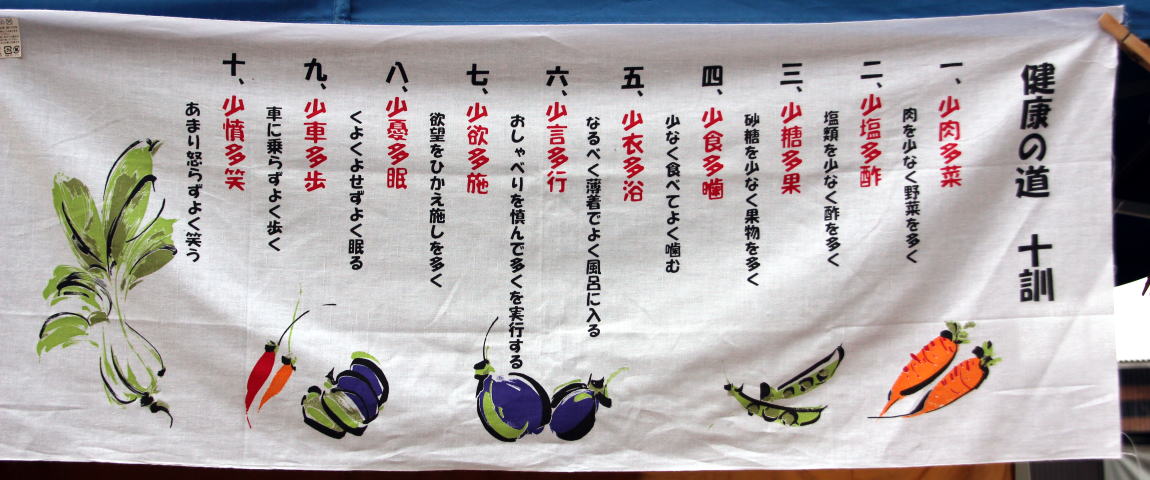 健康の道 十訓
一、少肉多菜
肉を少なく野菜を多く
二、少塩多酢
塩類を少なく酢を多く
三、少糖多果
砂糖を少なく果物を多く
四、少食多噛
少なく食べてよく噛む
五、少衣多浴
なるべく薄着でよく風呂に入る
六、少言多行
おしゃべりを慎んで多くを実行する
七、少欲多施
欲望をひかえ施しを多く
八、少憂多眠
くよくよせずよく眠る
九、少車多歩
車に乗らずよく歩く
十、少憤多笑
あまり怒らずよく笑う